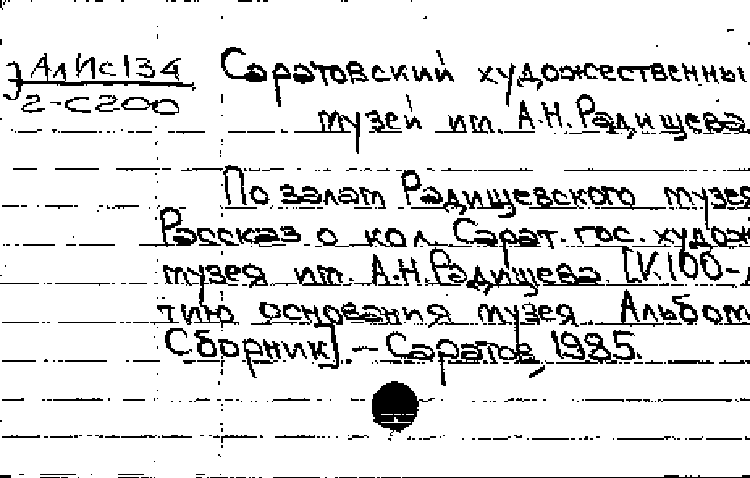 АлИс134
2-С200
Саратовский художественны
музей им. А.Н. Радищева.
По залам Радищевского музея
Рассказ о кол. Сарат. гос. худож
музея им. А.Н. Радищева [К 100-л
тию основания музея Альбом
Сборник]. – Саратов, 1985.